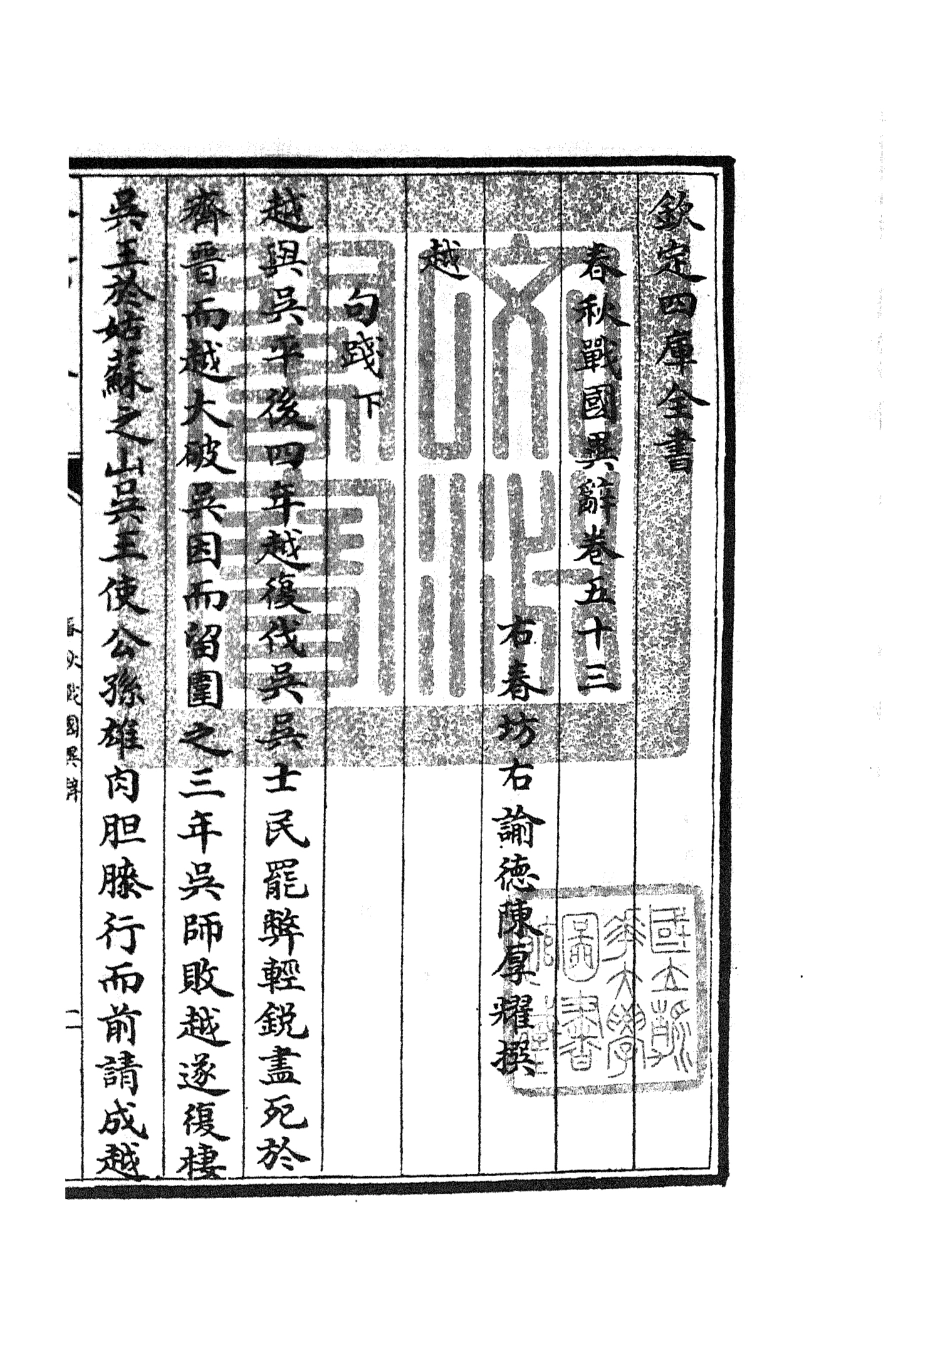 欽定四庫全書
春秋戰國異辭卷五十三
右春坊右諭德陳厚耀撰
越
句踐下
越與吳平後四年越復伐吳吳士民罷弊輕銳盡死於
齊晉而越大破吳因而留圍之三年吳師敗越遂復棲
吳王於姑蘇之山吳王使公孫雄肉胆膝行而前請成越
春秋戰國異辭